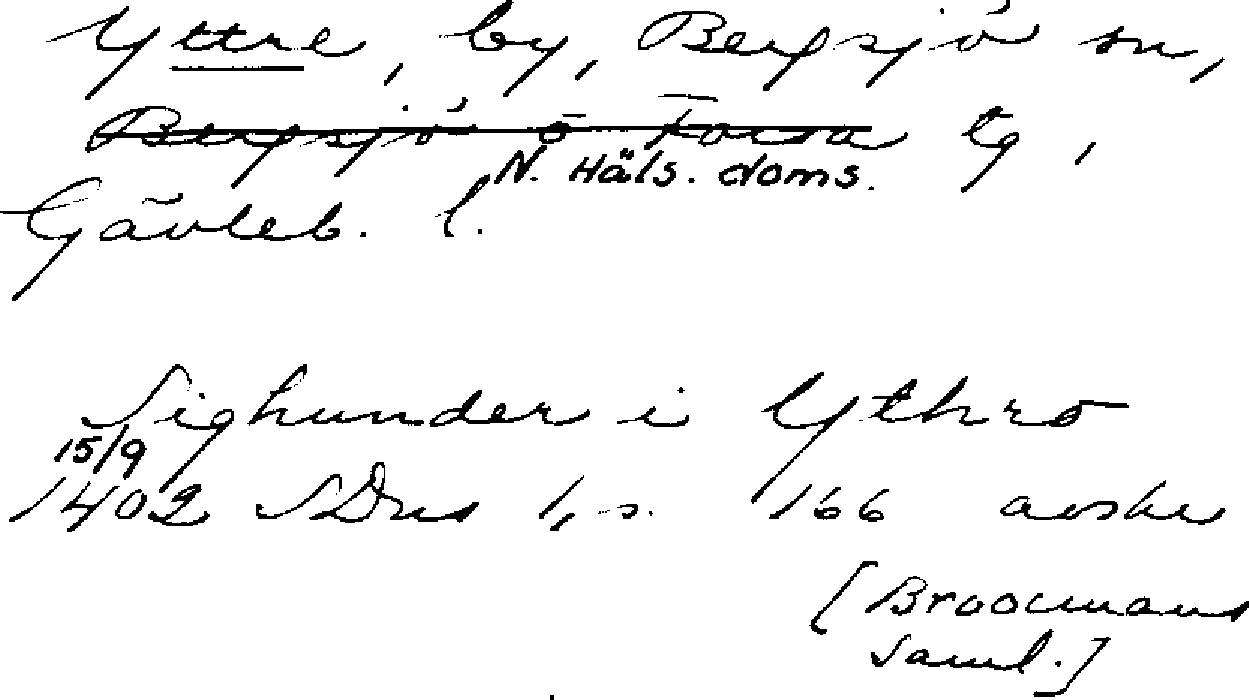 Yttre, by, Bergsjö sn,
Bergsjö o Forsa tg,
N. Häls. doms.
Gävleb. l.
Sighunder i Ythro
15/9
1402 SDns 1, s. 166 avskr
[Broocmans
saml.]